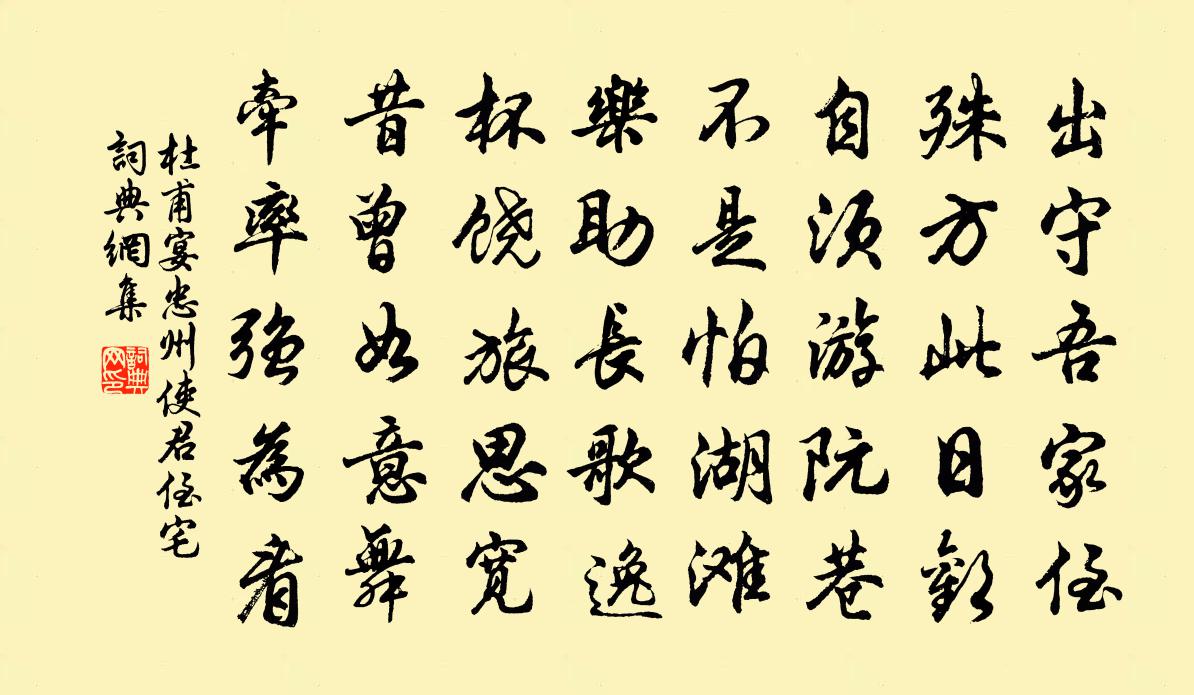 出守吾家侄
殊方此日歡
自须游阮巷
不是怕湖滩
樂助長歌逸
杯饶旅思宽
昔曾如意舞
牽率强為看
杜甫宴忠州使君侄宅
詞典網集
詞典网印